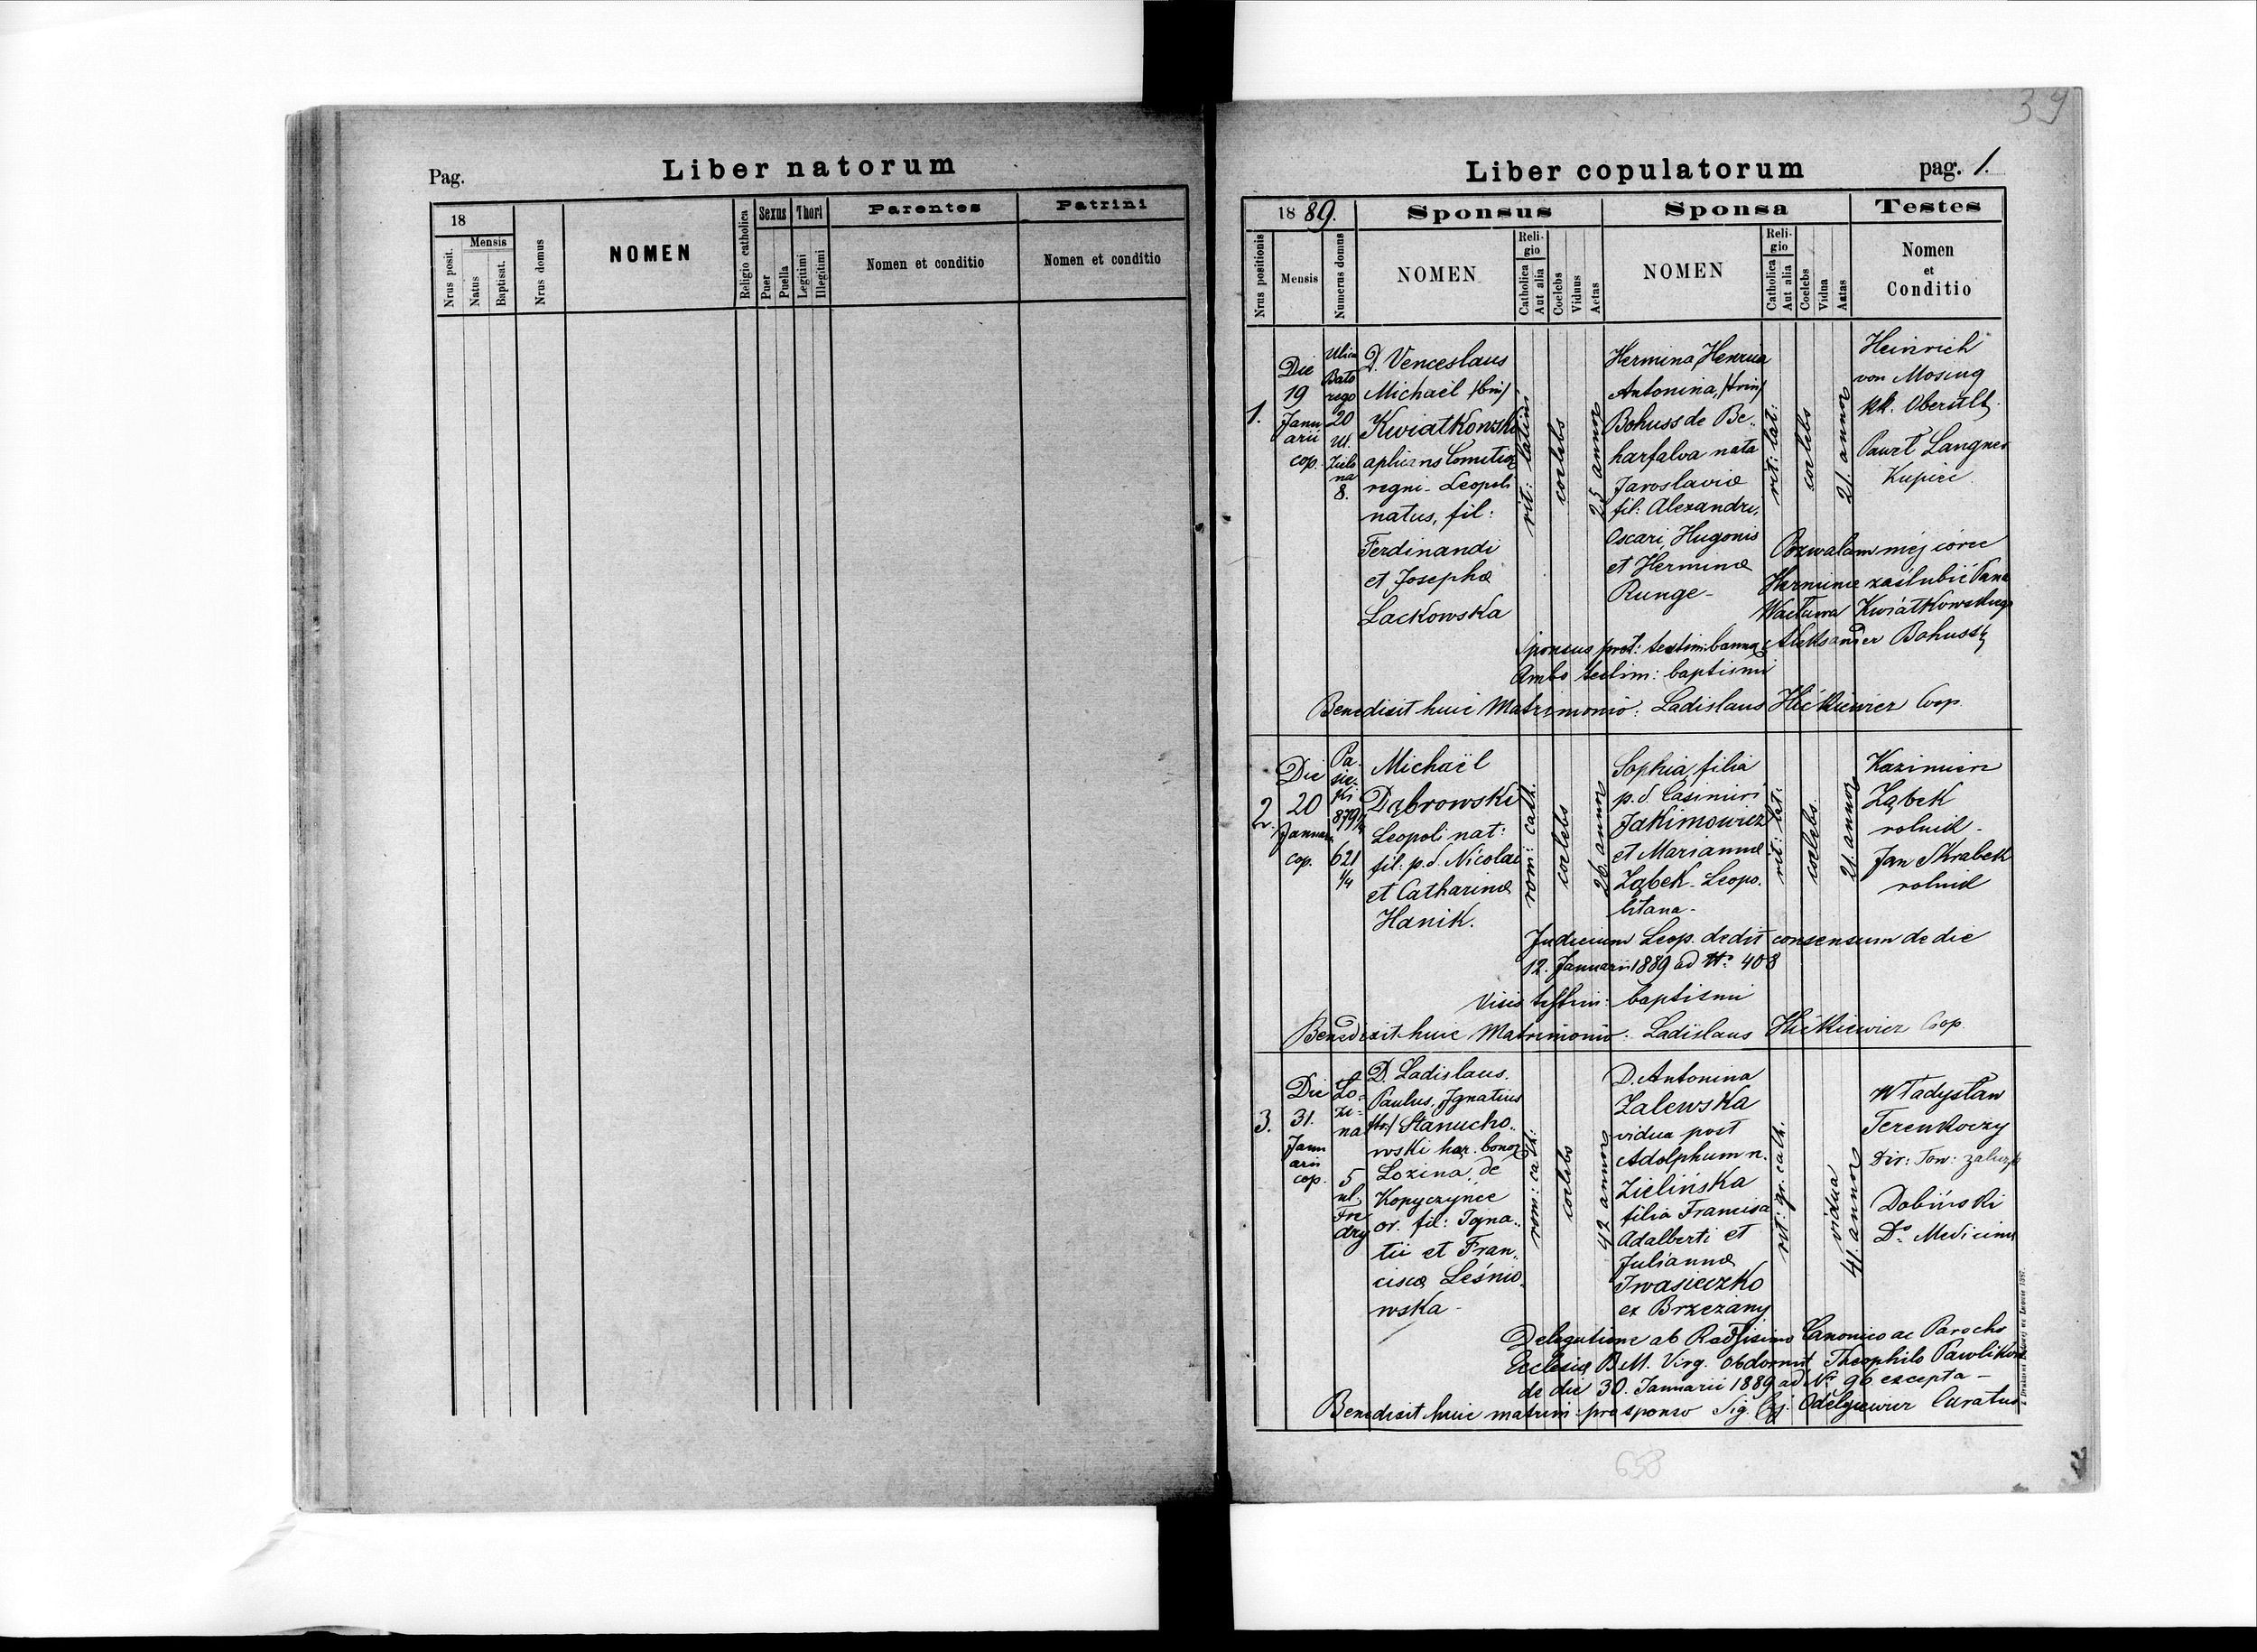 Pag.
Liber natorum
18
Mensis
Nrus posit.
Natus
Baptisat.
Nrus domus
NOMEN
Religio catholica
Sexus
Puer
Puella
Thori
Legitimi
Illegitimi
Parentes
Nomen et conditio
Patrini
Nomen et conditio
39
Liber copulatorum
pag. 1.
1889.
Nrus positionis
Mensis
Numerus domus
Sponsus
NOMEN
Religio
Catholica
Aut alia
Coelebs
Viduus
Aetas
Sponsa
NOMEN
Religio
Catholica
Aut alia
Coelebs
Vidua
Aetas
Testes
Nomen
et
Conditio
1.
Die
19
Janu
arii
cop.
Ulica
Bato
rego
20
Ul.
Zielo
na
8.
D. Venceslaus
Michaël /bin/
Kwiatkowski
regni - Leopoli
natus, fil:
Ferdinandi
et Josephæ
Lackowska
rit: latini
coelebs
25 annor
Antonina, /trin/
Bohuss de Be..
harfalva nata
Jaroslaviæ
fil: Alexandri,
Oscari, Hugonis
et Herminæ
Runge -
rit: lat:
coelebs
21. annor
Heinrich
von Mosing
Langner
Kupiec
Pozwalam mej córce
Herminie zaślubić Pana
Wacława Kwiatkowskiego
Aleksander Bohuss
Ambo testim: baptismi
Benedixit huic Matrimonio: Ladislaus Coop.
2.
Die
20
Januar
cop.
Pa
sie-
ki
879
621
1/4
Michaël
Dąbrowski
Leopoli nat:
fil: p.d. Nicolai
et Catharinæ
Hanik.
rom: cath.
coelebs
26. annor
Sophia, filia
p.d. Casimiri
Jakimowicz
et Mariannæ
Ząbek - Leopo.
litana -
rit: lat.
coelebs.
21. annor
Kazimierz
Ząbek
rolnik -
Jan Skrabek
rolnik
Judicium Leop. dedit consensum de die
12. Januarii 1889 ad N: 408
Visis testim: baptismi
Benedixit huic Matrimonio: Ladislaus Coop.
3.
Die
31.
Janu
arii
cop.
Lo-
zi-
na
5
ul.
Fre
dry
D. Ladislaus.
Paulus, Ignatius
/tr./ Stanucho..
wski hær. bonor
Lozina, de
Kopyczyńce
or. fil: Igna..
tii et Fran..
ciscæ Leśnio.
wska -
rom: cath:
coelebs
42 annor
D. Antonina
Zalewska
vidua post
Adolphum n.
Zielińska
filia Francisci
Adalberti et
Juliannæ
Iwasieczko
ex Brzezany
rit: gr. cath.
vidua
41. annor
Władysław
Terenkoczy
Dobiński
Dr. Medicinæ
Delegatione ab Canonico ac Parocho
Ecclesiæ B.M. Virg. Theophilo
de die 30. Januarii 1889 ad N. 96 excepta -
Benedixit huic matrim: pro sponso Sig. Curatus
658